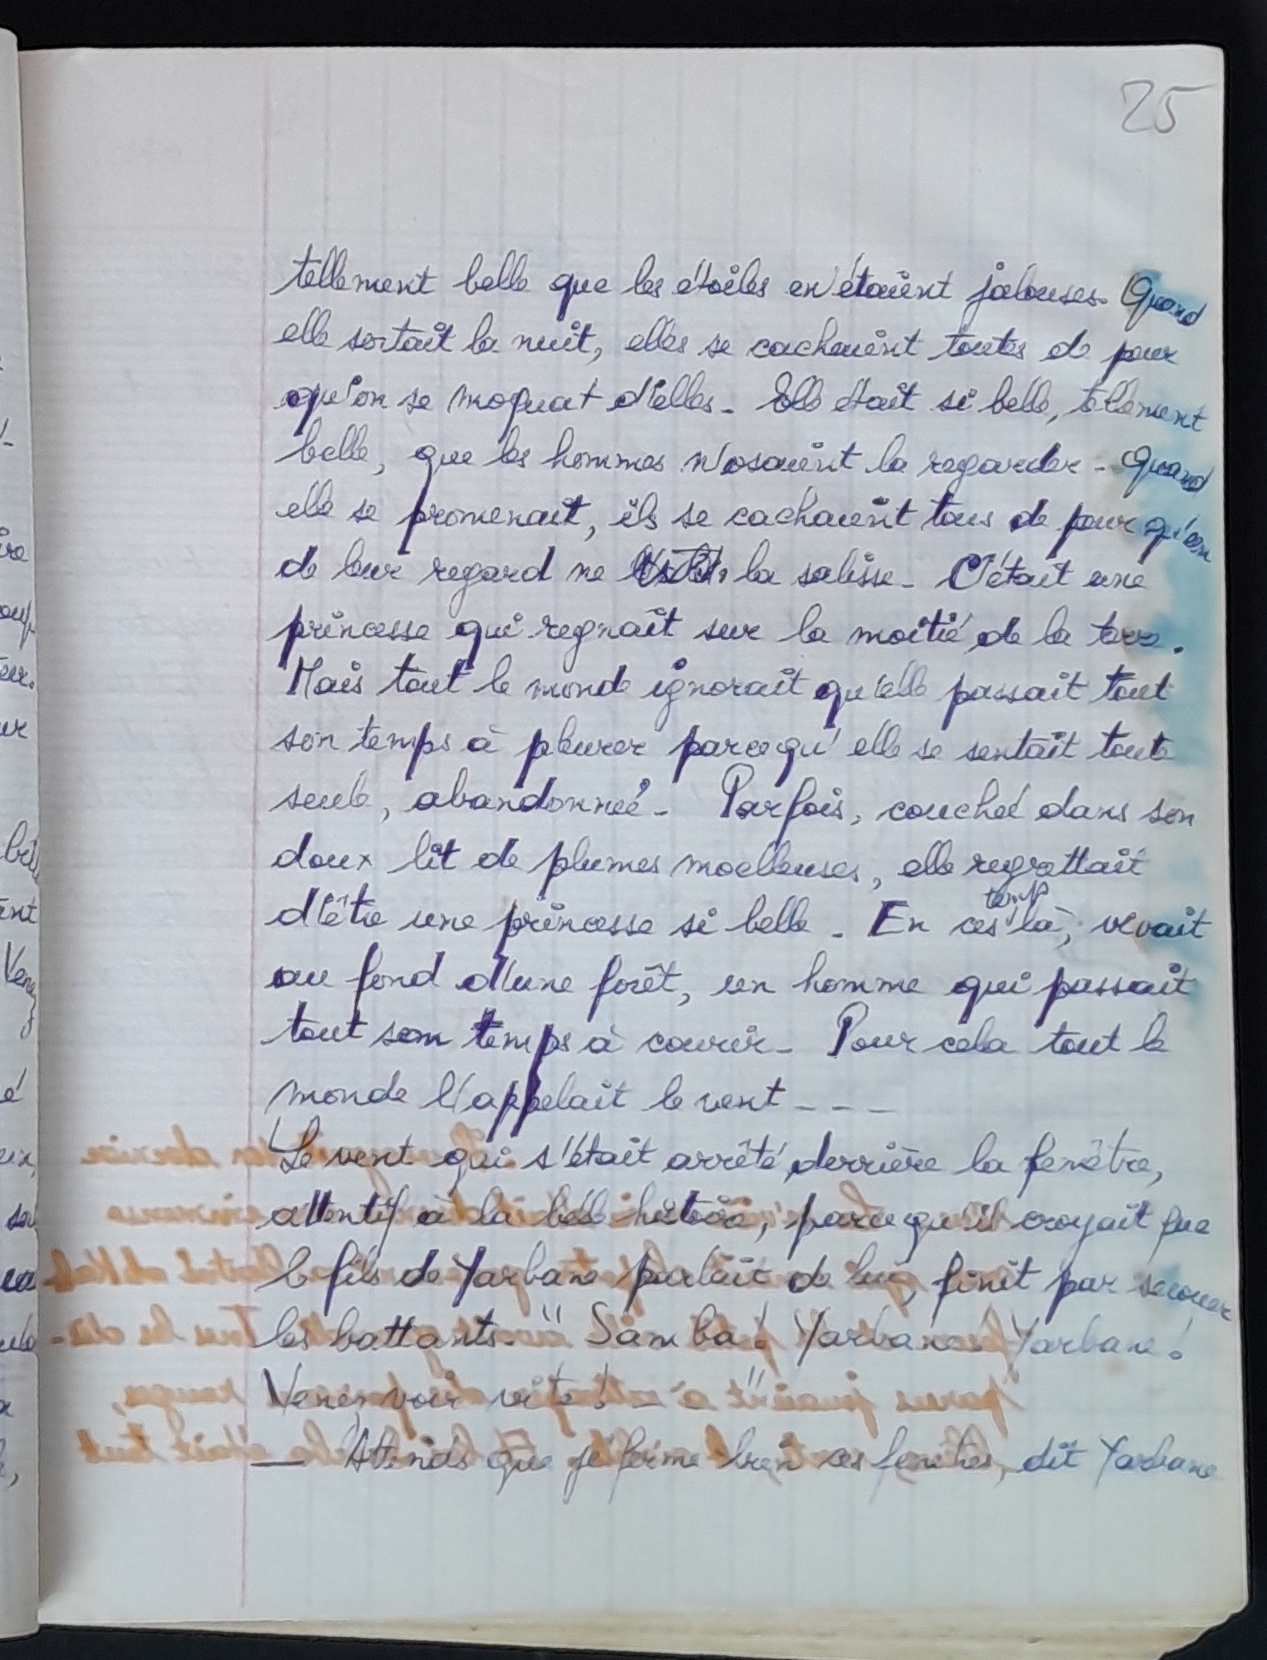 25
tellement belle que les étoiles en étaient jalouses. Quand
elle sortait la nuit, elles se cachaient toutes de peur
qu'on se moquat d'elles. Elle était si belle, tellement
belle, que les hommes n'osaient la regarder. Quand
elle se promenait, ils se cachaient tous de peur qu'un
de leur regard ne la salisse. C'était une
princesse qui regnait sur la moitié de la terre.
Mais tout le monde ignorait qu'elle passait tout
son temps à pleurer parcequ'elle se sentait toute
seule, abandonnée. Parfois, couchée dans son
doux lit de plumes moelleuses, elle regrettait
d'être une princesse si belle. En ces temps là, vivait
au fond d'une forêt, un homme qui passait
tout son temps à courir. Pour cela tout le
monde l'appelait le vent ---
Le vent qui s'était arrêté derrière la fenêtre,
attentif à la belle histoire, parcequ'il croyait que
le fils de Yarbane parlait de lui, finit par secouer
les battants. "Samba! Yarbane! Yarbane!
Venez voir vite!"
— Attends que je ferme bien ces fenêtres, dit Yarbane